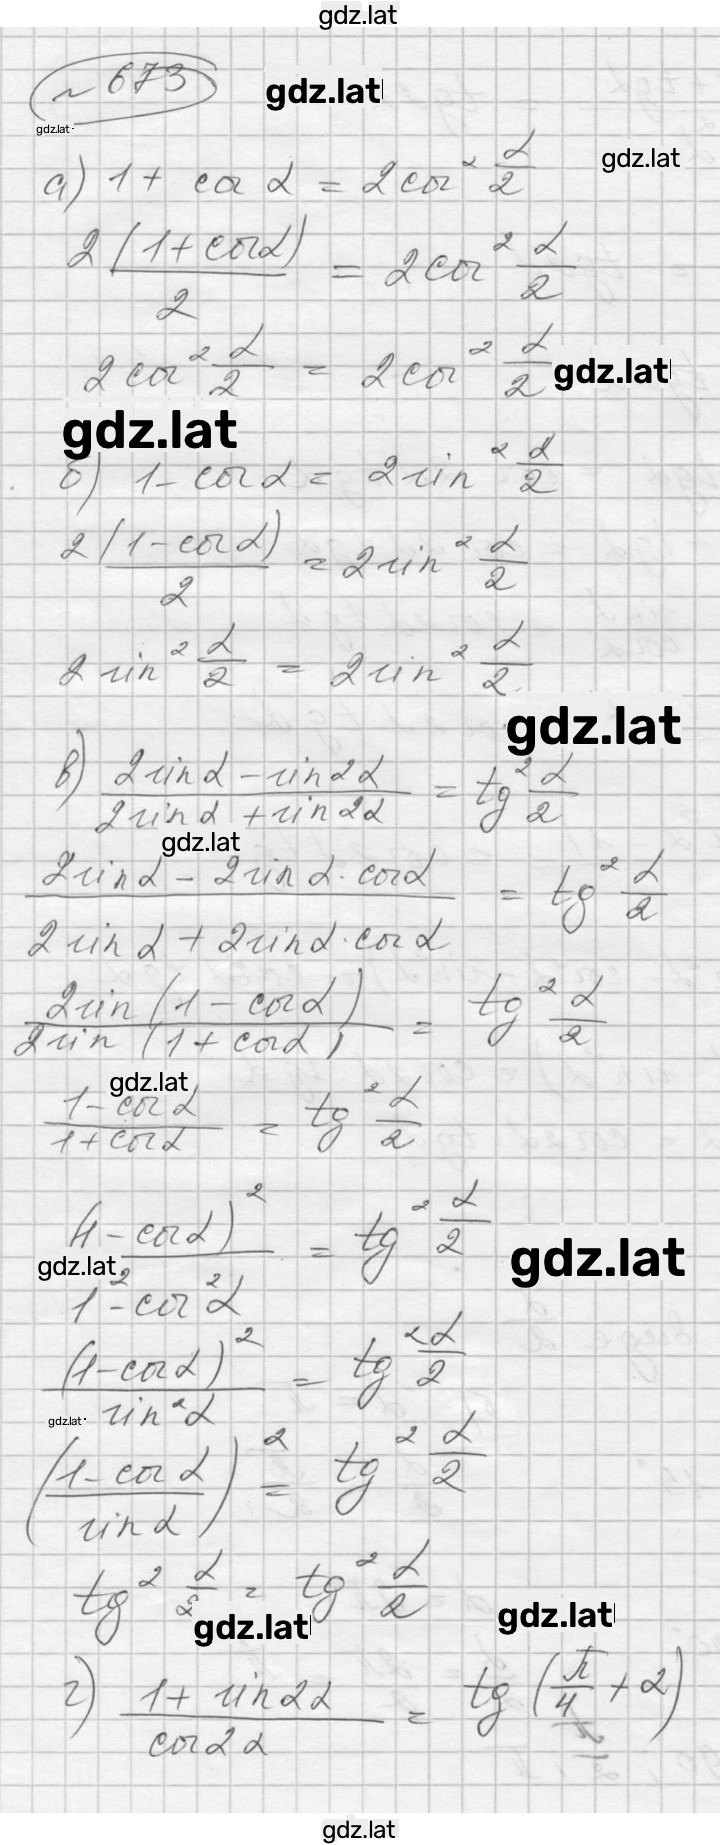 gdz.lat
№ 673
gdz.lat
gdz.lat
gdz.lat
а) 1 + cos α = 2cos² α/2
2(1 + cos α)/2 = 2cos² α/2
2cos² α/2 = 2cos² α/2
gdz.lat
gdz.lat
б) 1 - cos α = 2sin² α/2
2(1 - cos α)/2 = 2sin² α/2
2sin² α/2 = 2sin² α/2
gdz.lat
в) (2sin α - sin 2α)/(2sin α + sin 2α) = tg² α/2
gdz.lat
(2sin α - 2sin α · cos α)/(2sin α + 2sin α · cos α) = tg² α/2
2sin(1 - cos α)/2sin(1 + cos α) = tg² α/2
gdz.lat
(1 - cos α)/(1 + cos α) = tg² α/2
(1 - cos α)²/(1² - cos² α) = tg² α/2
gdz.lat
gdz.lat
(1 - cos α)²/sin² α = tg² α/2
gdz.lat
((1 - cos α)/sin α)² = tg² α/2
tg² α/2 = tg² α/2
gdz.lat
gdz.lat
г) (1 + sin 2α)/cos 2α = tg(π/4 + α)
gdz.lat